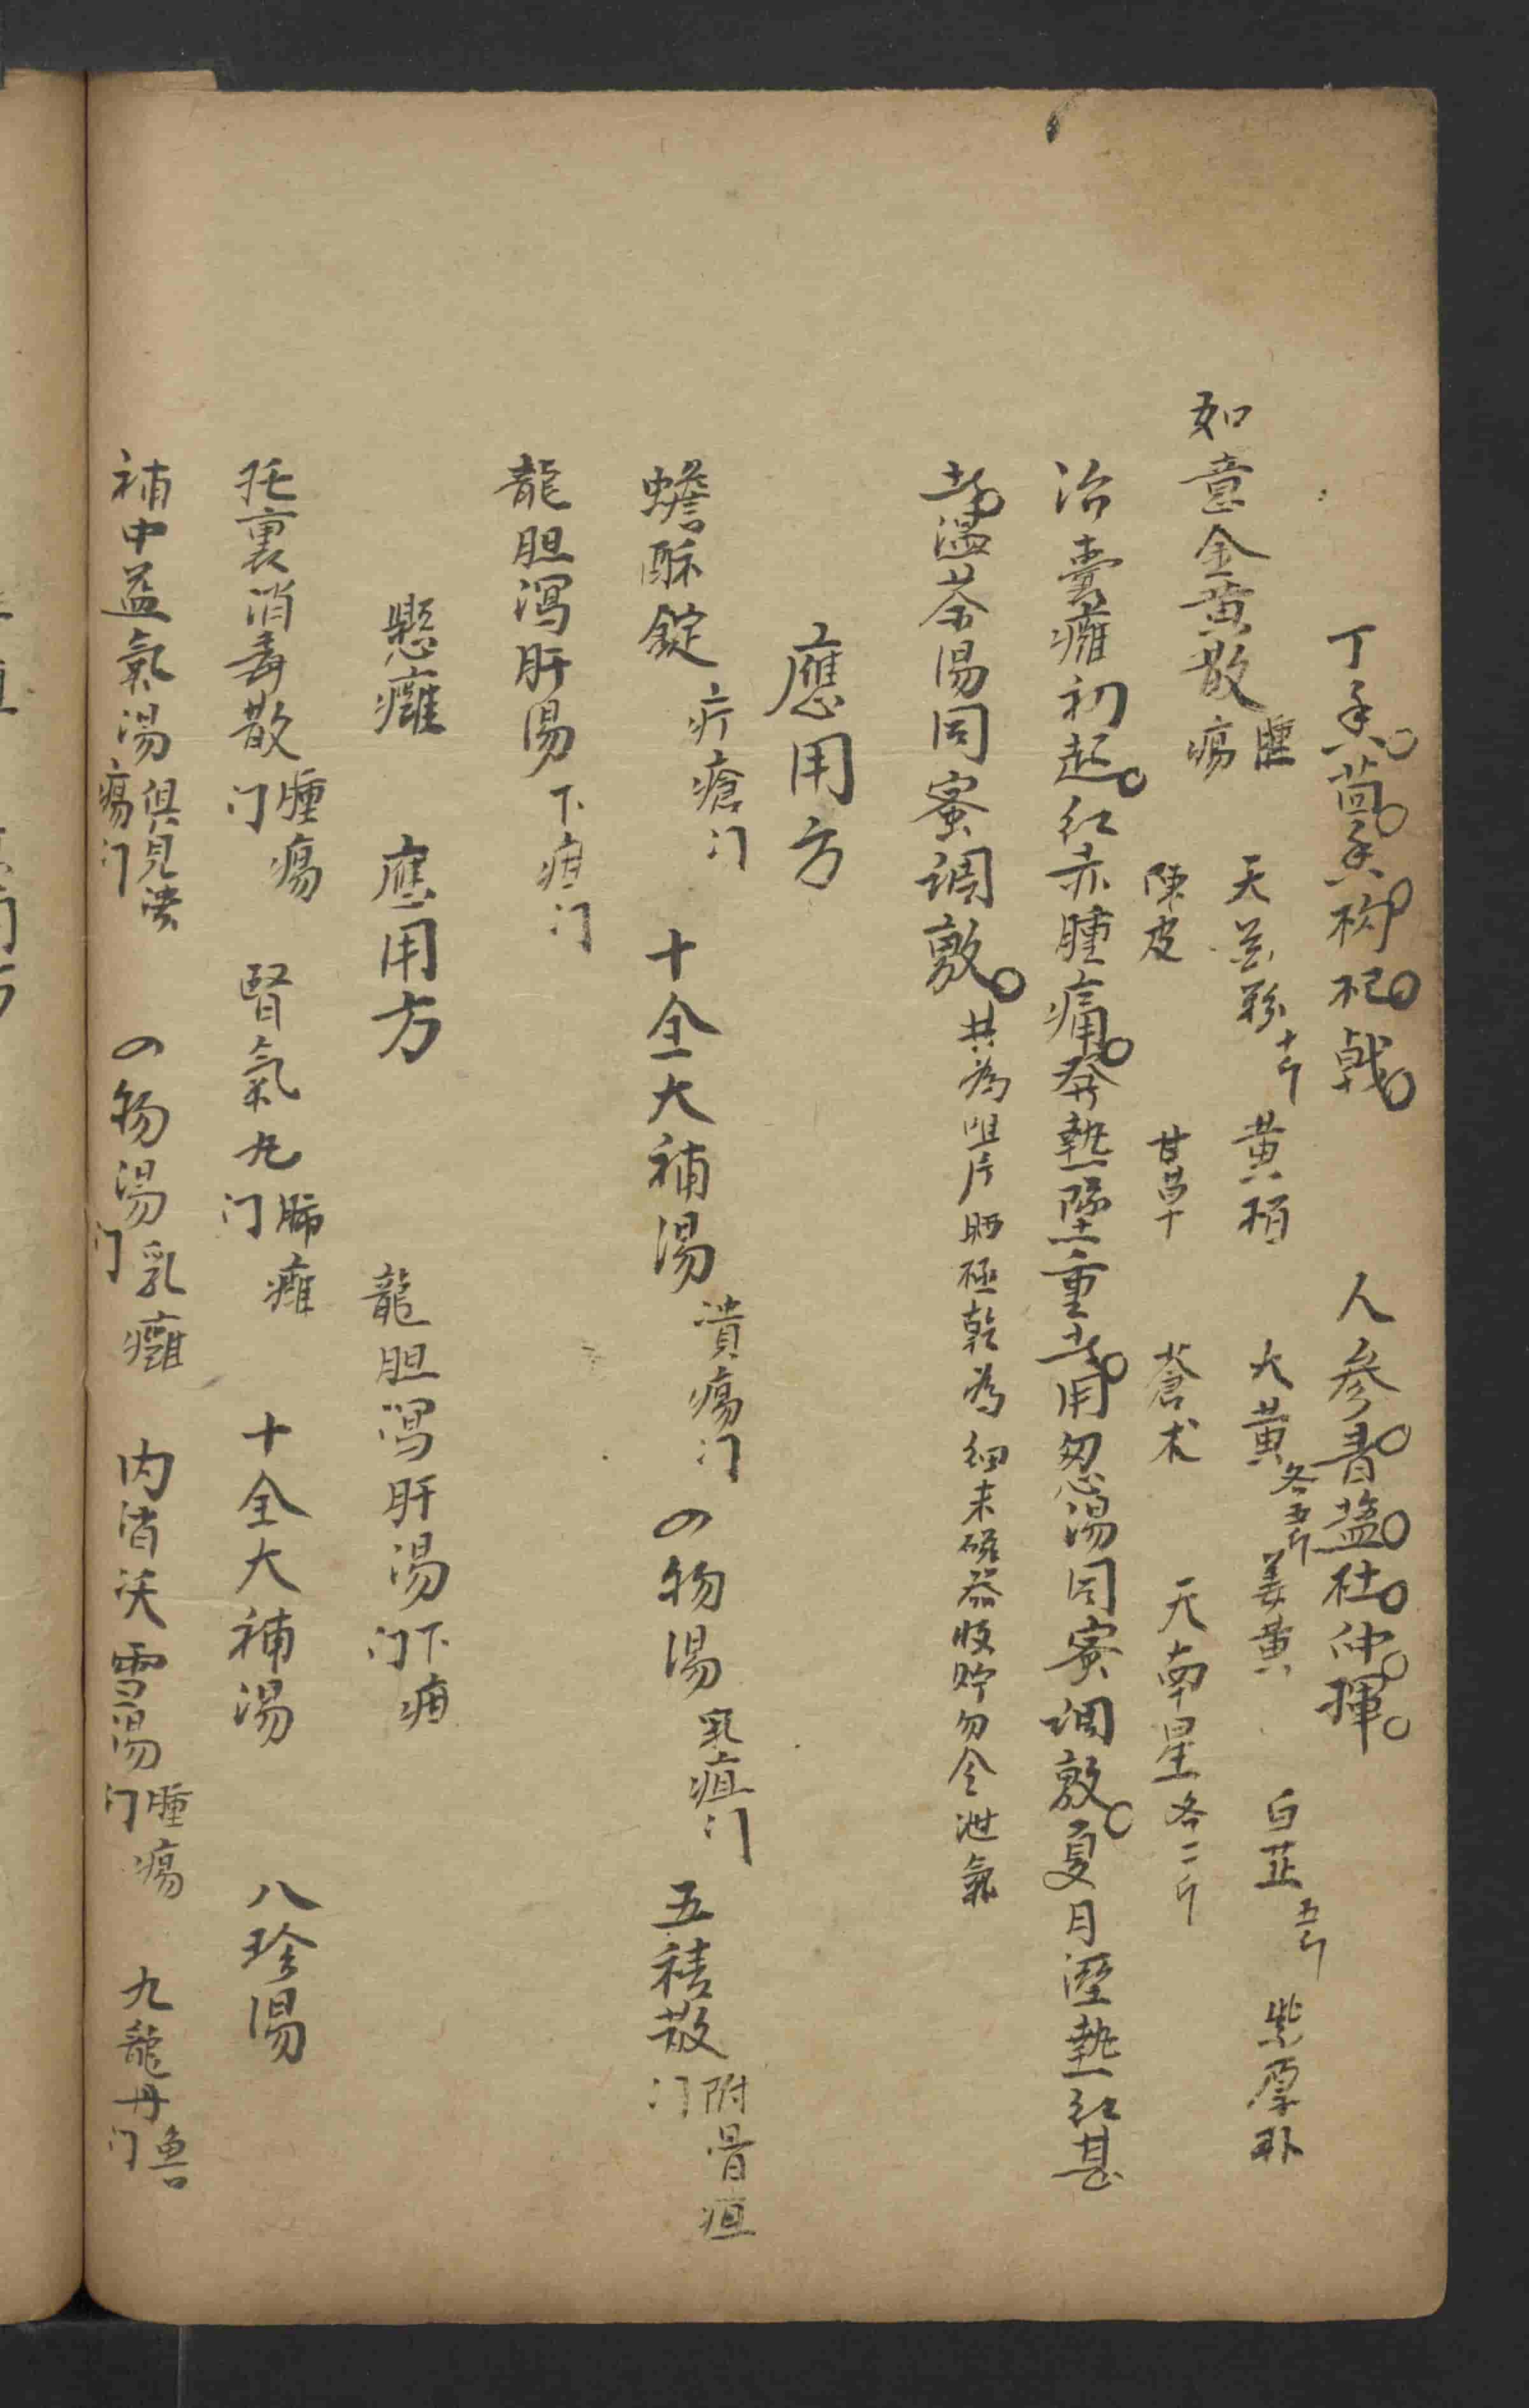 丁香茴香枸杞戟　人參青盐杜仲揮
如意金黄散腫瘍　天花粉十斤　黄栢　大黄各五斤　姜黄　白芷五斤　紫厚朴
陳皮　甘草　蒼术　天南星各二斤
治囊癰初起红赤腫痛發熱墜重者用葱湯同蜜调敷夏月溼熱红甚
者温茶湯同蜜调敷共為咀片晒極乾為細末磁器收貯勿令泄氣
應用方
蟾酥錠疔瘡门　十全大補湯潰瘍门　四物湯乳疽门　五積散附骨疽门
龍胆瀉肝湯下疳门
懸癰　應用方　龍胆瀉肝湯下疳门
托裏消毒散腫瘍门　腎氣丸肺癰门　十全大補湯　八珍湯
補中益氣湯俱見潰瘍门　四物湯乳癰门　内消沃雪湯腫瘍门　九龍丹魚口门